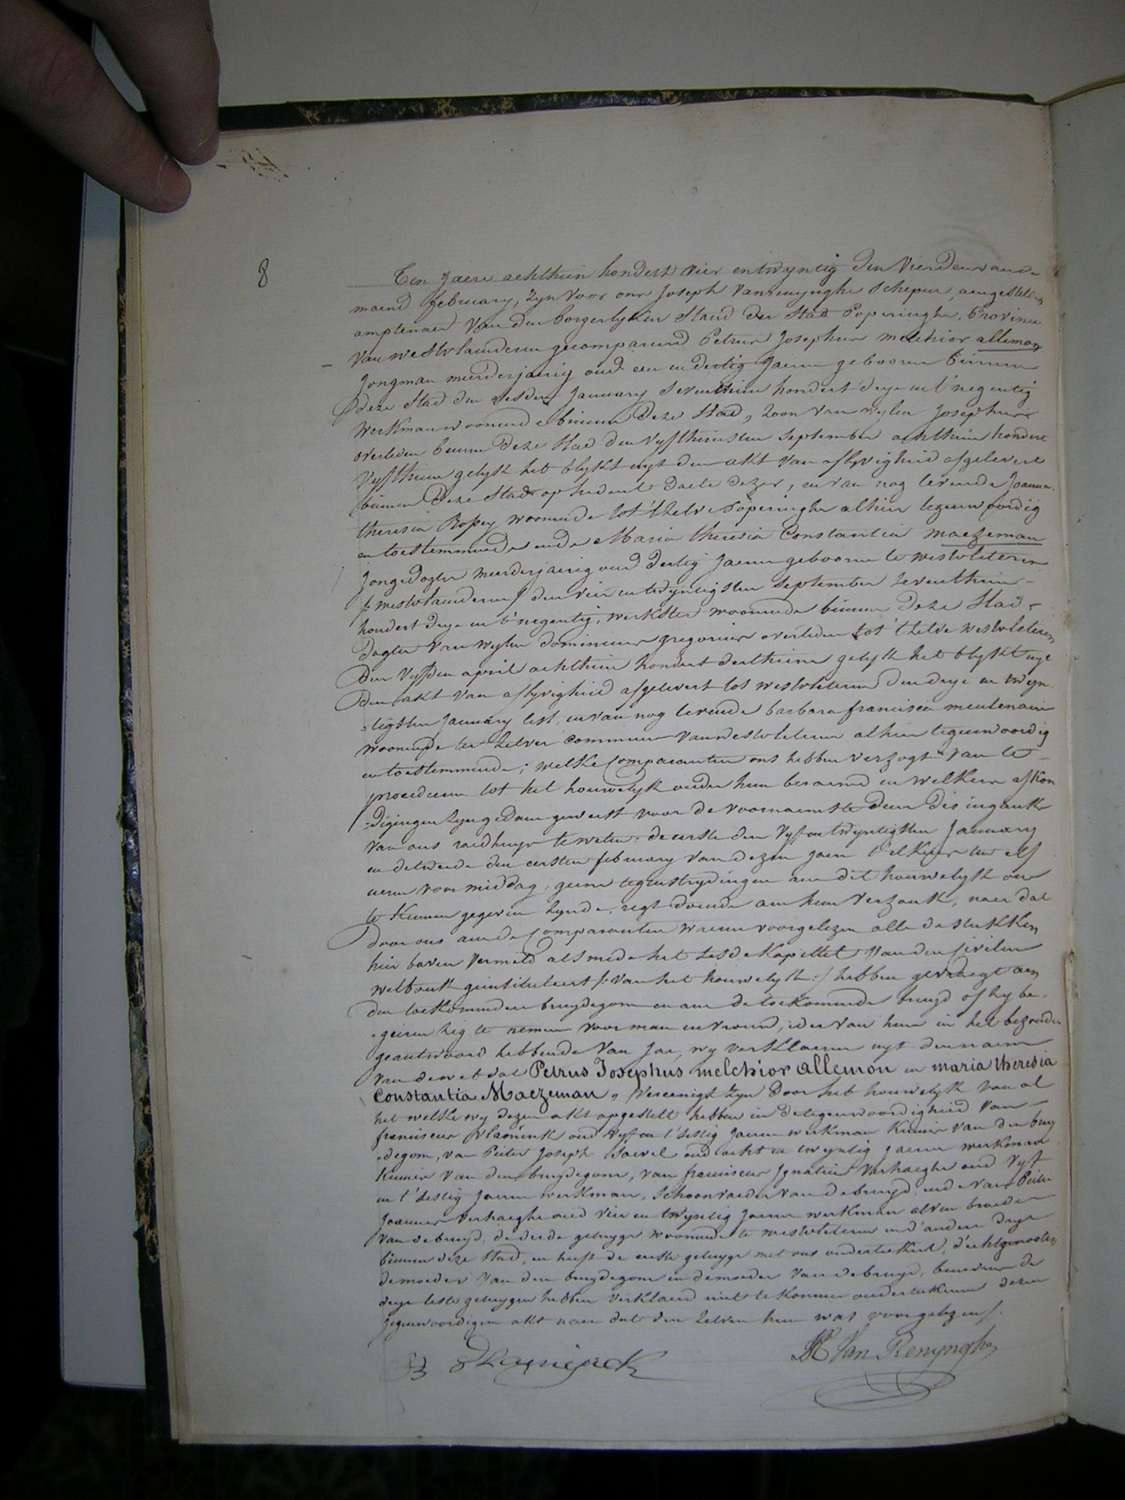 8
Ten Jaere achthien hondert vier en twyntig den vierden van de
maend february, zyn voor ons Joseph Vanrenynghe schepen, aengestelden
amptenaer van den borgerlyken staed der stad Poperinghe, Provincie
van Westvlaenderen gecompareerd Petrus Josephus melchior allemon
Jongman meerderjaerig oud een en dertig Jaeren geboren binnen
deze stad den sesden January seventhien hondert drye en t'negentig
werkman woonende binnen deze stad, zoon van wylen Josephus
overleden binnen deze stad den vyfthiensten september achthien hondert
vyfthien gelyk het blykt uyt den akt van aflyvigheid afgelevert
binnen deze stad op heden date dezer, en van nog levende Joanna
theresia Rossey woonende tot t'zelve Poperinghe alhier tegenwoordig
en toestemmende ende Maria theresia Constantia maezeman
Jongedogter meerderjaerig oud dertig Jaeren geboren te westvleteren
/: westvlaenderen :/ den vier en twyntigsten september seventhien
hondert drye en t'negentig, werkster woonende binnen deze stad
dogter van wylen dominicus gregorius overleden tot t'zelve westvleteren
den vyfden april achthien hondert derthiene gelyk het blykt uyt
den akt van aflyvigheid afgelevert tot westvleteren den drye en twyn
tigsten January lest, en van nog levende barbara francisca meulenaere
woonende ter zelver commune van westvleteren alhier tegenwoordig
en toestemmende; welke comparanten ons hebben verzogt van te
procederen tot het houwelyk onder hun beraemd en welkers afkon
digingen zyn gedaen geweest voor de voornaemste deure dis ingank
van ons raedhuys te weten: de eerste den vyf en twyntigsten January
en de tweede den eersten february van dezen jaere t'elkens ten elf
uren voormiddag. geene tegenstrydingen aen dit houwelyk ons
te kennen gegeven zynde, regt doende aen hun verzoek, naer dat
door ons aen de comparanten waeren voorgelezen alle de stukken
hier boven vermeld als mede het sesde kapittel van den sivilen
wetboek geintituleert /: van het houwelyk :/ hebben gevraegt aen
den toekommenden bruydegom en aen de toekommende bruyd of hy be
geiren zig te nemen voor man en vrouw, ider van hun in het bezonder
geantwoord hebbende van Jae, wy verklaeren uyt den naem
van de wet dat Petrus Josephus melchior allemon en maria theresia
Constantia Maezeman, vereenigt zyn door het houwelyk van al
het welke wy dezen akt opgestelt hebben in de tegenwoordigheid van
franciscus vlaeminck oud vyf en t'sestig Jaeren werkman kennis van den bruy
degom, van Pieter Joseph oud acht en twyntig Jaeren werkman
kennis van den bruydegom, van franciscus Ignatius Verhaeghe oud vyf
en t'sestig Jaeren werkman, schoonvaeder van de bruyd ende van Pieter
Joannes Verhaeghe oud vier en twyntig Jaeren werkman alven broeder
van de bruyd, de derde getuyge woonende te westvleteren en d'andere drye
binnen deze stad, en heeft de eerste getuyge met ons onderteekent, d'echtgenooten
de moeder van den bruydegom en de moeder van de bruyd, benevens de
drye leste getuygen hebben verklaerd niet te konnen onderteekenen dezen
Jegenwoordigen akt naer dat den zelven hun was voorgelezen /.
Van Renynghe